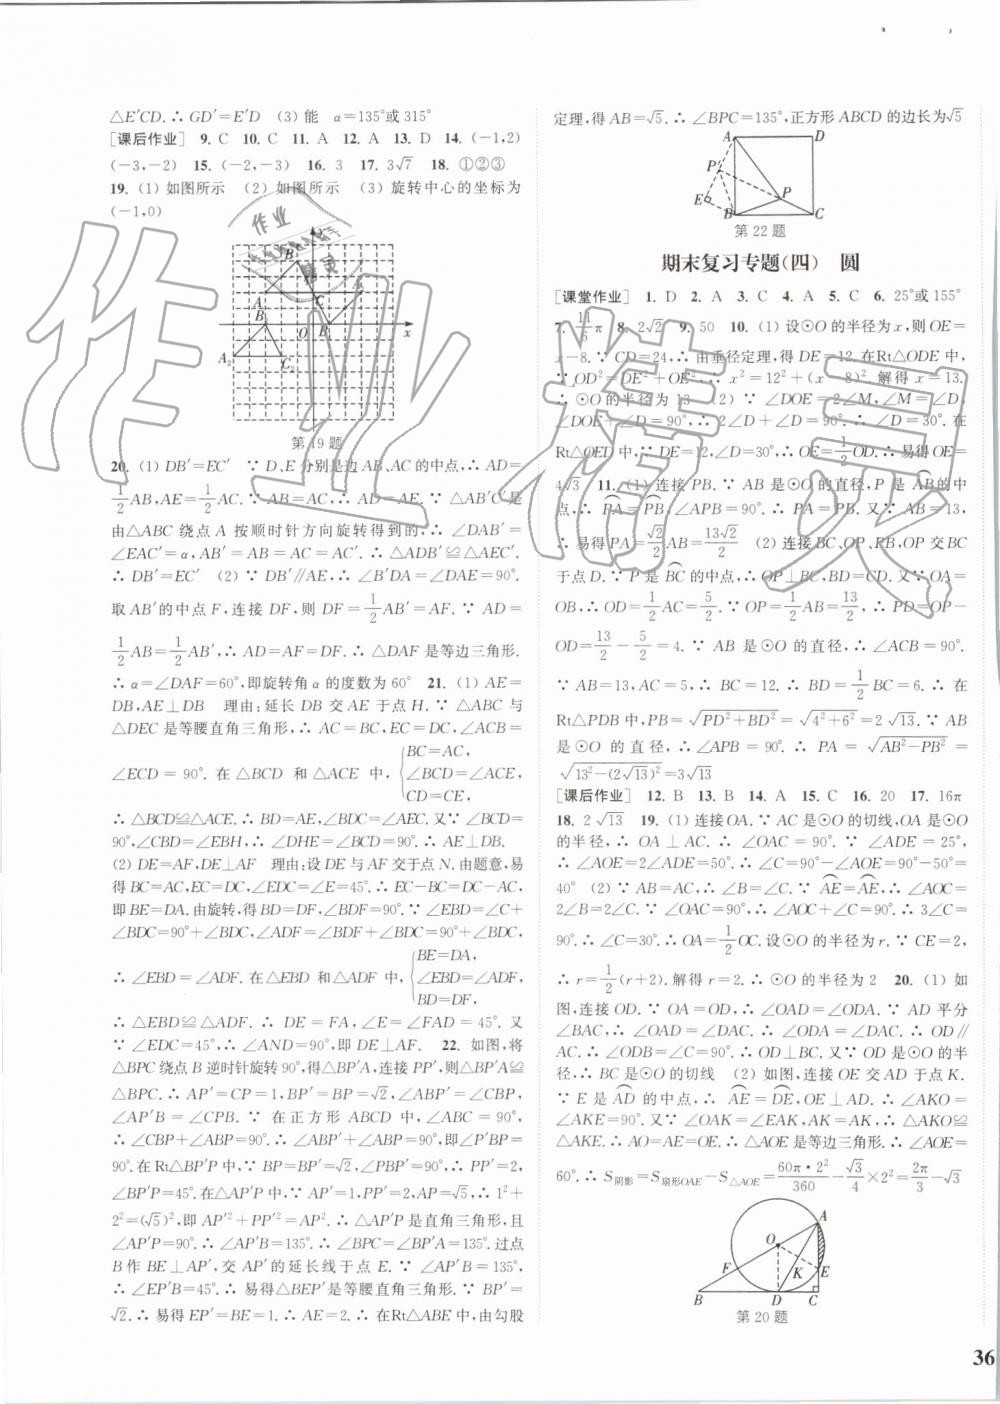 △E′CD.∴ GD′=E′D　(3) 能　α=135°或315°
[课后作业]　9. C　10. C　11. A　12. A　13. D　14. (-1,2)
(-3,-2)　15. (-2,-3)　16. 3　17. 3√7　18. ①②③
19. (1) 如图所示　(2) 如图所示　(3) 旋转中心的坐标为
(-1,0)
第 19 题
20. (1) DB′=EC′　∵ D、E 分别是边AB、AC 的中点,∴ AD=
1/2 AB,AE=1/2 AC. ∵ AB=AC,∴ AD=AE. ∵ △AB′C′是
由△ABC 绕点 A 按顺时针方向旋转得到的,∴ ∠DAB′=
∠EAC′=α,AB′=AB=AC=AC′.∴ △ADB′≌△AEC′.
∴ DB′=EC′　(2) ∵ DB′∥AE,∴ ∠B′DA=∠DAE=90°.
取 AB′的中点 F,连接 DF,则 DF=1/2 AB′=AF. ∵ AD=
1/2 AB=1/2 AB′,∴ AD=AF=DF.∴ △DAF 是等边三角形.
∴ α=∠DAF=60°,即旋转角 α 的度数为 60°　21. (1) AE=
DB,AE⊥DB　理由:延长 DB 交 AE 于点 H. ∵ △ABC 与
△DEC 是等腰直角三角形,∴ AC=BC,EC=DC,∠ACB=
∠ECD = 90°. 在 △BCD 和 △ACE 中, { BC=AC, ∠BCD=∠ACE, CD=CE,
∴ △BCD≌△ACE.∴ BD=AE,∠BDC=∠AEC. 又∵ ∠BCD=
90°,∠CBD=∠EBH,∴ ∠DHE=∠BCD=90°.∴ AE⊥DB.
(2) DE=AF,DE⊥AF　理由:设 DE 与 AF 交于点 N. 由题意,易
得 BC=AC,EC=DC,∠EDC=∠E=45°.∴ EC-BC=DC-AC,
即 BE=DA. 由旋转,得 BD=DF,∠BDF=90°. ∵ ∠EBD=∠C+
∠BDC=90°+∠BDC,∠ADF=∠BDF+∠BDC=90°+∠BDC,
∴ ∠EBD=∠ADF. 在△EBD 和△ADF 中, { BE=DA, ∠EBD=∠ADF, BD=DF,
∴ △EBD≌△ADF. ∴ DE = FA,∠E = ∠FAD = 45°. 又
∵ ∠EDC=45°,∴ ∠AND=90°,即 DE⊥AF.　22. 如图,将
△BPC 绕点 B 逆时针旋转 90°,得△BP′A,连接 PP′,则△BP′A≌
△BPC. ∴ AP′=CP=1,BP′=BP=√2,∠ABP′=∠CBP,
∠AP′B = ∠CPB. ∵ 在正方形 ABCD 中,∠ABC = 90°,
∴ ∠CBP+∠ABP=90°.∴ ∠ABP′+∠ABP=90°,即∠P′BP=
90°. 在 Rt△BP′P 中,∵ BP=BP′=√2,∠PBP′=90°,∴ PP′=2,
∠BP′P=45°. 在△AP′P 中,∵ AP′=1,PP′=2,AP=√5,∴ 1²+
2²=(√5)²,即 AP′²+PP′²=AP².∴ △AP′P 是直角三角形,且
∠AP′P=90°.∴ ∠AP′B=135°.∴ ∠BPC=∠BP′A=135°. 过点
B 作 BE⊥AP′,交 AP′的延长线于点 E. ∵ ∠AP′B=135°,
∴ ∠EP′B=45°. ∴ 易得△BEP′是等腰直角三角形. ∵ BP′=
√2,∴ 易得 EP′=BE=1. ∴ AE=2. ∴ 在Rt△ABE 中,由勾股
定理,得 AB=√5.∴ ∠BPC=135°,正方形 ABCD 的边长为√5
第 22 题
期末复习专题(四)　圆
[课堂作业]　1. D　2. A　3. C　4. A　5. C　6. 25°或155°
7. 11/6 π　8. 2√2　9. 50　10. (1) 设⊙O 的半径为 x,则 OE=
x-8. ∵ CD=24,∴ 由垂径定理,得 DE=12. 在Rt△ODE 中,
∵ OD²=DE²+OE²,∴ x²=12²+(x-8)². 解得 x=13.
∴ ⊙O 的半径为 13　(2) ∵ ∠DOE=2∠M,∠M=∠D,
∠DOE+∠D=90°,∴ 2∠D+∠D=90°.∴ ∠D=30°. 在
Rt△OED 中,∵ DE=12,∠D=30°,∴ OE=1/2 OD.∴ 易得 OE=
4√3　11. (1) 连接 PB. ∵ AB 是⊙O 的直径,P 是 AB的中
点,∴ PA=PB,∠APB=90°.∴ PA=PB. 又∵ AB=13,
∴ 易得 PA=√2/2 AB=13√2/2　(2) 连接 BC、OP、PB,OP 交 BC
于点 D. ∵ P 是 BC 的中点,∴ OP⊥BC,BD=CD. 又∵ OA=
OB,∴ OD=1/2 AC=5/2. ∵ OP=1/2 AB=13/2,∴ PD=OP-
OD=13/2-5/2=4. ∵ AB 是⊙O 的直径,∴ ∠ACB=90°.
∵ AB=13,AC=5,∴ BC=12.∴ BD=1/2 BC=6.∴ 在
Rt△PDB 中,PB=√(PD²+BD²)=√(4²+6²)=2√13. ∵ AB
是⊙O 的直径,∴ ∠APB = 90°. ∴ PA = √(AB²-PB²) =
√(13²-(2√13)²)=3√13
[课后作业]　12. B　13. B　14. A　15. C　16. 20　17. 16π
18. 2√13　19. (1) 连接OA. ∵ AC 是⊙O 的切线,OA 是⊙O
的半径,∴ OA⊥AC. ∴ ∠OAC = 90°. ∵ ∠ADE = 25°,
∴ ∠AOE=2∠ADE=50°.∴ ∠C=90°-∠AOE=90°-50°=
40°　(2) ∵ AB=AC,∴ ∠B=∠C. ∵ AE=AE,∴ ∠AOC=
2∠B=2∠C. ∵ ∠OAC=90°,∴ ∠AOC+∠C=90°.∴ 3∠C=
90°.∴ ∠C=30°.∴ OA=1/2 OC. 设⊙O 的半径为 r. ∵ CE=2,
∴ r=1/2(r+2). 解得 r=2.∴ ⊙O 的半径为 2　20. (1) 如
图,连接 OD. ∵ OA=OD,∴ ∠OAD=∠ODA. ∵ AD 平分
∠BAC,∴ ∠OAD=∠DAC. ∴ ∠ODA=∠DAC. ∴ OD∥
AC.∴ ∠ODB=∠C=90°.∴ OD⊥BC. 又∵ OD 是⊙O 的半
径,∴ BC 是⊙O 的切线　(2) 如图,连接 OE 交 AD 于点 K.
∵ E 是 AD 的中点,∴ AE=DE,OE⊥AD.∴ ∠AKO=
∠AKE=90°. 又∵ ∠OAK=∠EAK,AK=AK,∴ △AKO≌
△AKE.∴ AO=AE=OE.∴ △AOE 是等边三角形.∴ ∠AOE=
60°.∴ S阴影=S扇形OAE-S△AOE=60π·2²/360-√3/4×2²=2π/3-√3
第 20 题
36